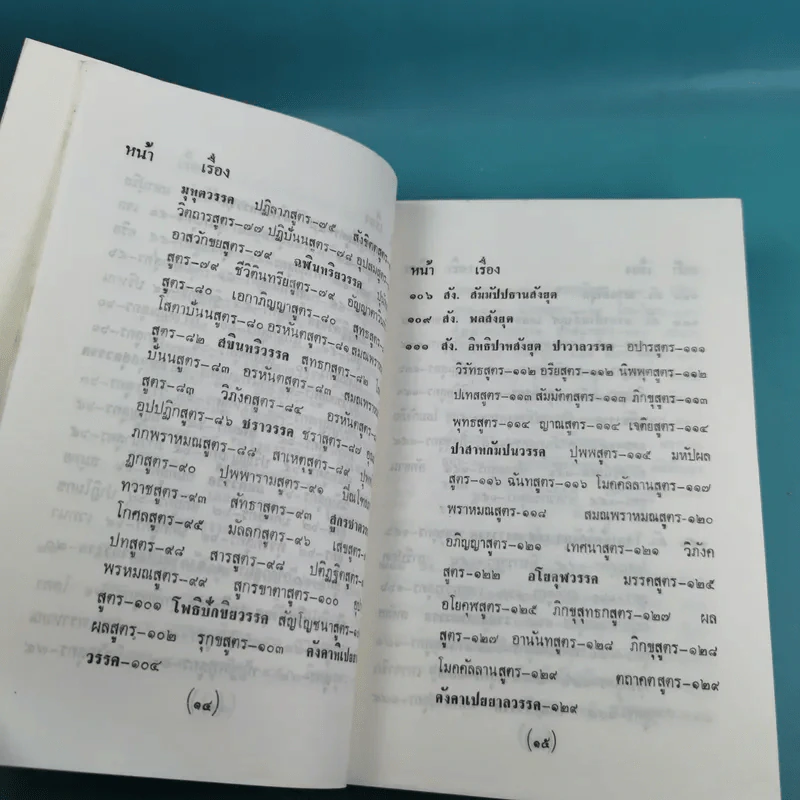 หน้า เรื่อง
มุทุตวรรค ปฏิลาภสูตร-๗๕ สังขิตตสูตร-
วิตถารสูตร-๗๗ ปฏิปันนสูตร-๗๘ อุปสมสูตร
อาสวักขยสูตร-๗๙ ฉฬินทริยวรรค
สูตร-๗๙ ชีวิตินทริยสูตร-๗๙ อัญญาตาวิน
สูตร-๘๐ เอกาภิญญาสูตร-๘๐ สุทธกสูตร-
โสตาปันนสูตร-๘๐ อรหันตสูตร-๘๑ สมณพราหม
สูตร-๘๒ สุขินทริวรรค สุทธกสูตร-๘๒ โส
ปันนสูตร-๘๓ อรหันตสูตร-๘๓ สมณพราห
สูตร-๘๓ วิภังคสูตร-๘๔ อรหันตสูตร-
อุปปฏิกสูตร-๘๖ ชราวรรค ชราสูตร-๘๗ อุณ
ภกพราหมณสูตร-๘๘ สาเหตุสูตร-๘๙ ปุพพ
ฏกสูตร-๙๐ ปุพพารามสูตร-๙๑ ปิณโฑล
ทวาชสูตร-๙๓ สัทธาสูตร-๙๓ สูกรขาตวร
โกศลสูตร-๙๕ มัลลกสูตร-๙๖ เสขสูตร-
ปทสูตร-๙๘ สารสูตร-๙๘ ปติฏฐิตสูตร-
พรหมณสูตร-๙๙ สูกรขาตาสูตร-๑๐๐ อุป
สูตร-๑๐๑ โพธิปักขิยวรรค สัญโญชนาสูตร-๑๐
ผลสูตร-๑๐๒ รุกขสูตร-๑๐๓ คังคาเปยย
วรรค-๑๐๔
(๑๔)
หน้า เรื่อง
๑๐๖ สัง. สัมมัปปธานสังยุต
๑๐๙ สัง. พลสังยุต
๑๑๑ สัง. อิทธิปาทสังยุต ปาวาลวรรค อปารสูตร-๑๑๑
วิรัทธสูตร-๑๑๒ อริยสูตร-๑๑๒ นิพพุตสูตร-๑๑๒
ปเทสสูตร-๑๑๓ สัมมัตตสูตร-๑๑๓ ภิกขุสูตร-๑๑๓
พุทธสูตร-๑๑๔ ญาณสูตร-๑๑๔ เจติยสูตร-๑๑๔
ปาสาทกัมปนวรรค ปุพพสูตร-๑๑๕ มหัปผล
สูตร-๑๑๖ ฉันทสูตร-๑๑๖ โมคคัลลานสูตร-๑๑๗
พราหมณสูตร-๑๑๘ สมณพราหมณสูตร-๑๒๐
อภิญญาสูตร-๑๒๑ เทศนาสูตร-๑๒๑ วิภังค
สูตร-๑๒๒ อโยคุฬวรรค มรรคสูตร-๑๒๕
อโยคุฬสูตร-๑๒๕ ภิกขุสุทธกสูตร-๑๒๖ ผล
สูตร-๑๒๗ อานันทสูตร-๑๒๘ ภิกขุสูตร-๑๒๘
โมคคัลลานสูตร-๑๒๙ ตถาคตสูตร-๑๒๙
คังคาเปยยาลวรรค-๑๒๙
(๑๕)